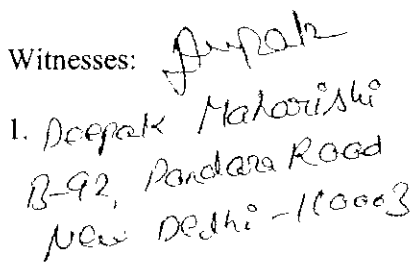 Witnesses: Deepak
1. Deepak Maharishi
B-92, Pandara Road
New Delhi - 110003